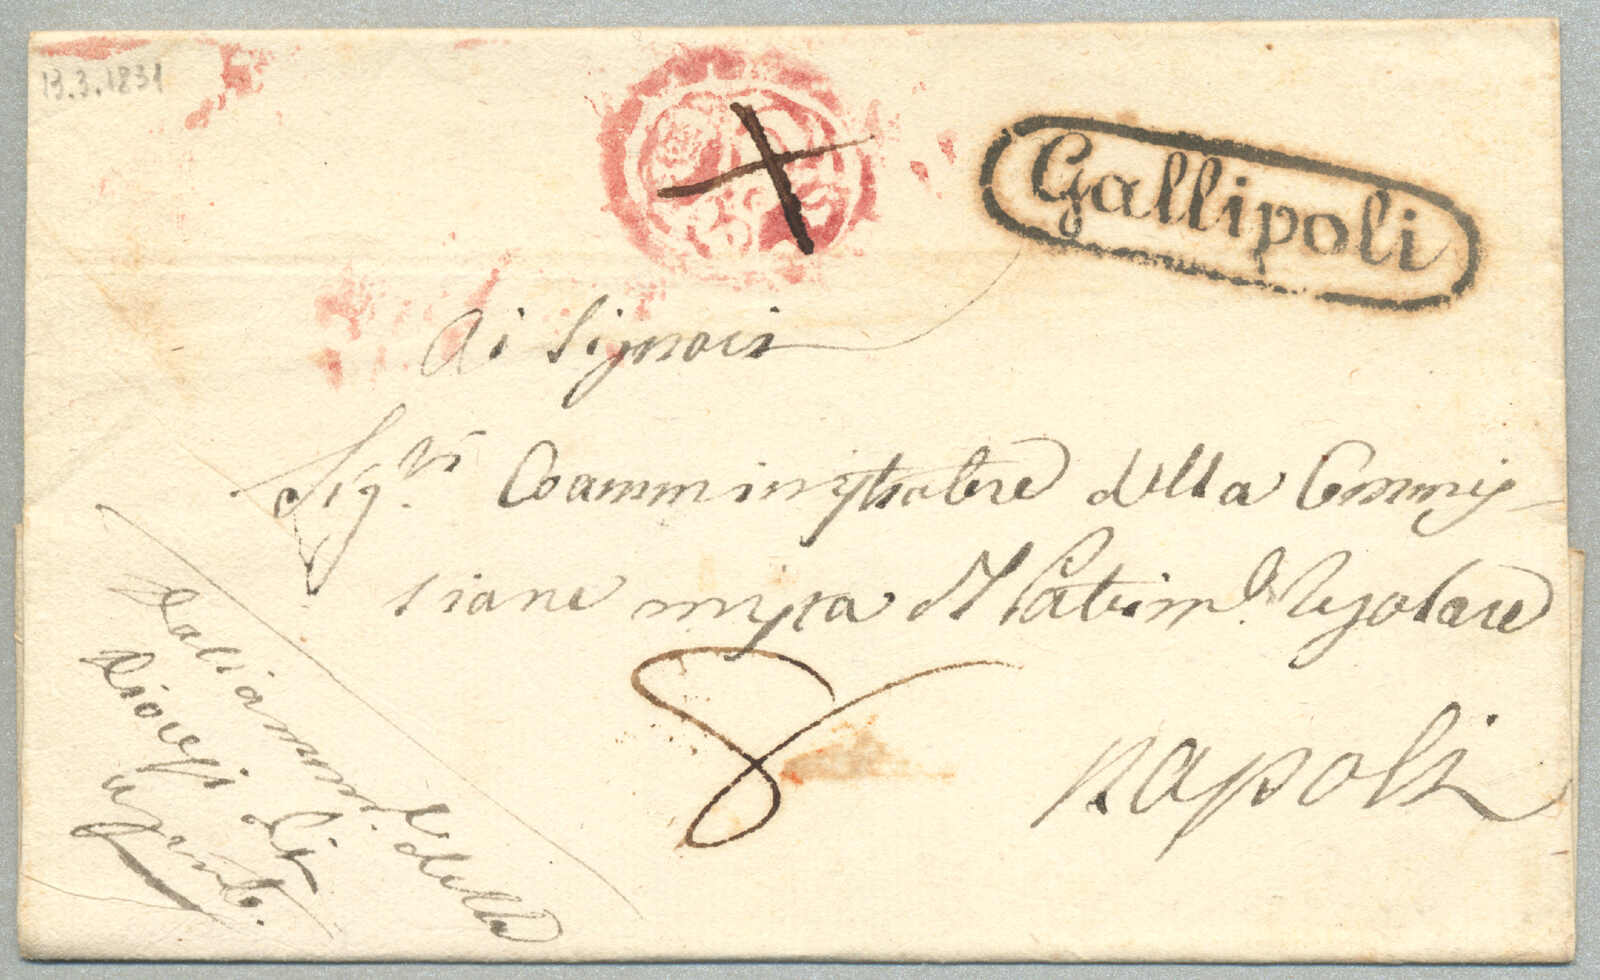 13.3.1831
Gallipoli
Ai Signori
Sig.ri Coamministratore della Commis-
sione mista del Patrim.o Regolare
8
Napoli
Dall'amm.e della
Diocesi di